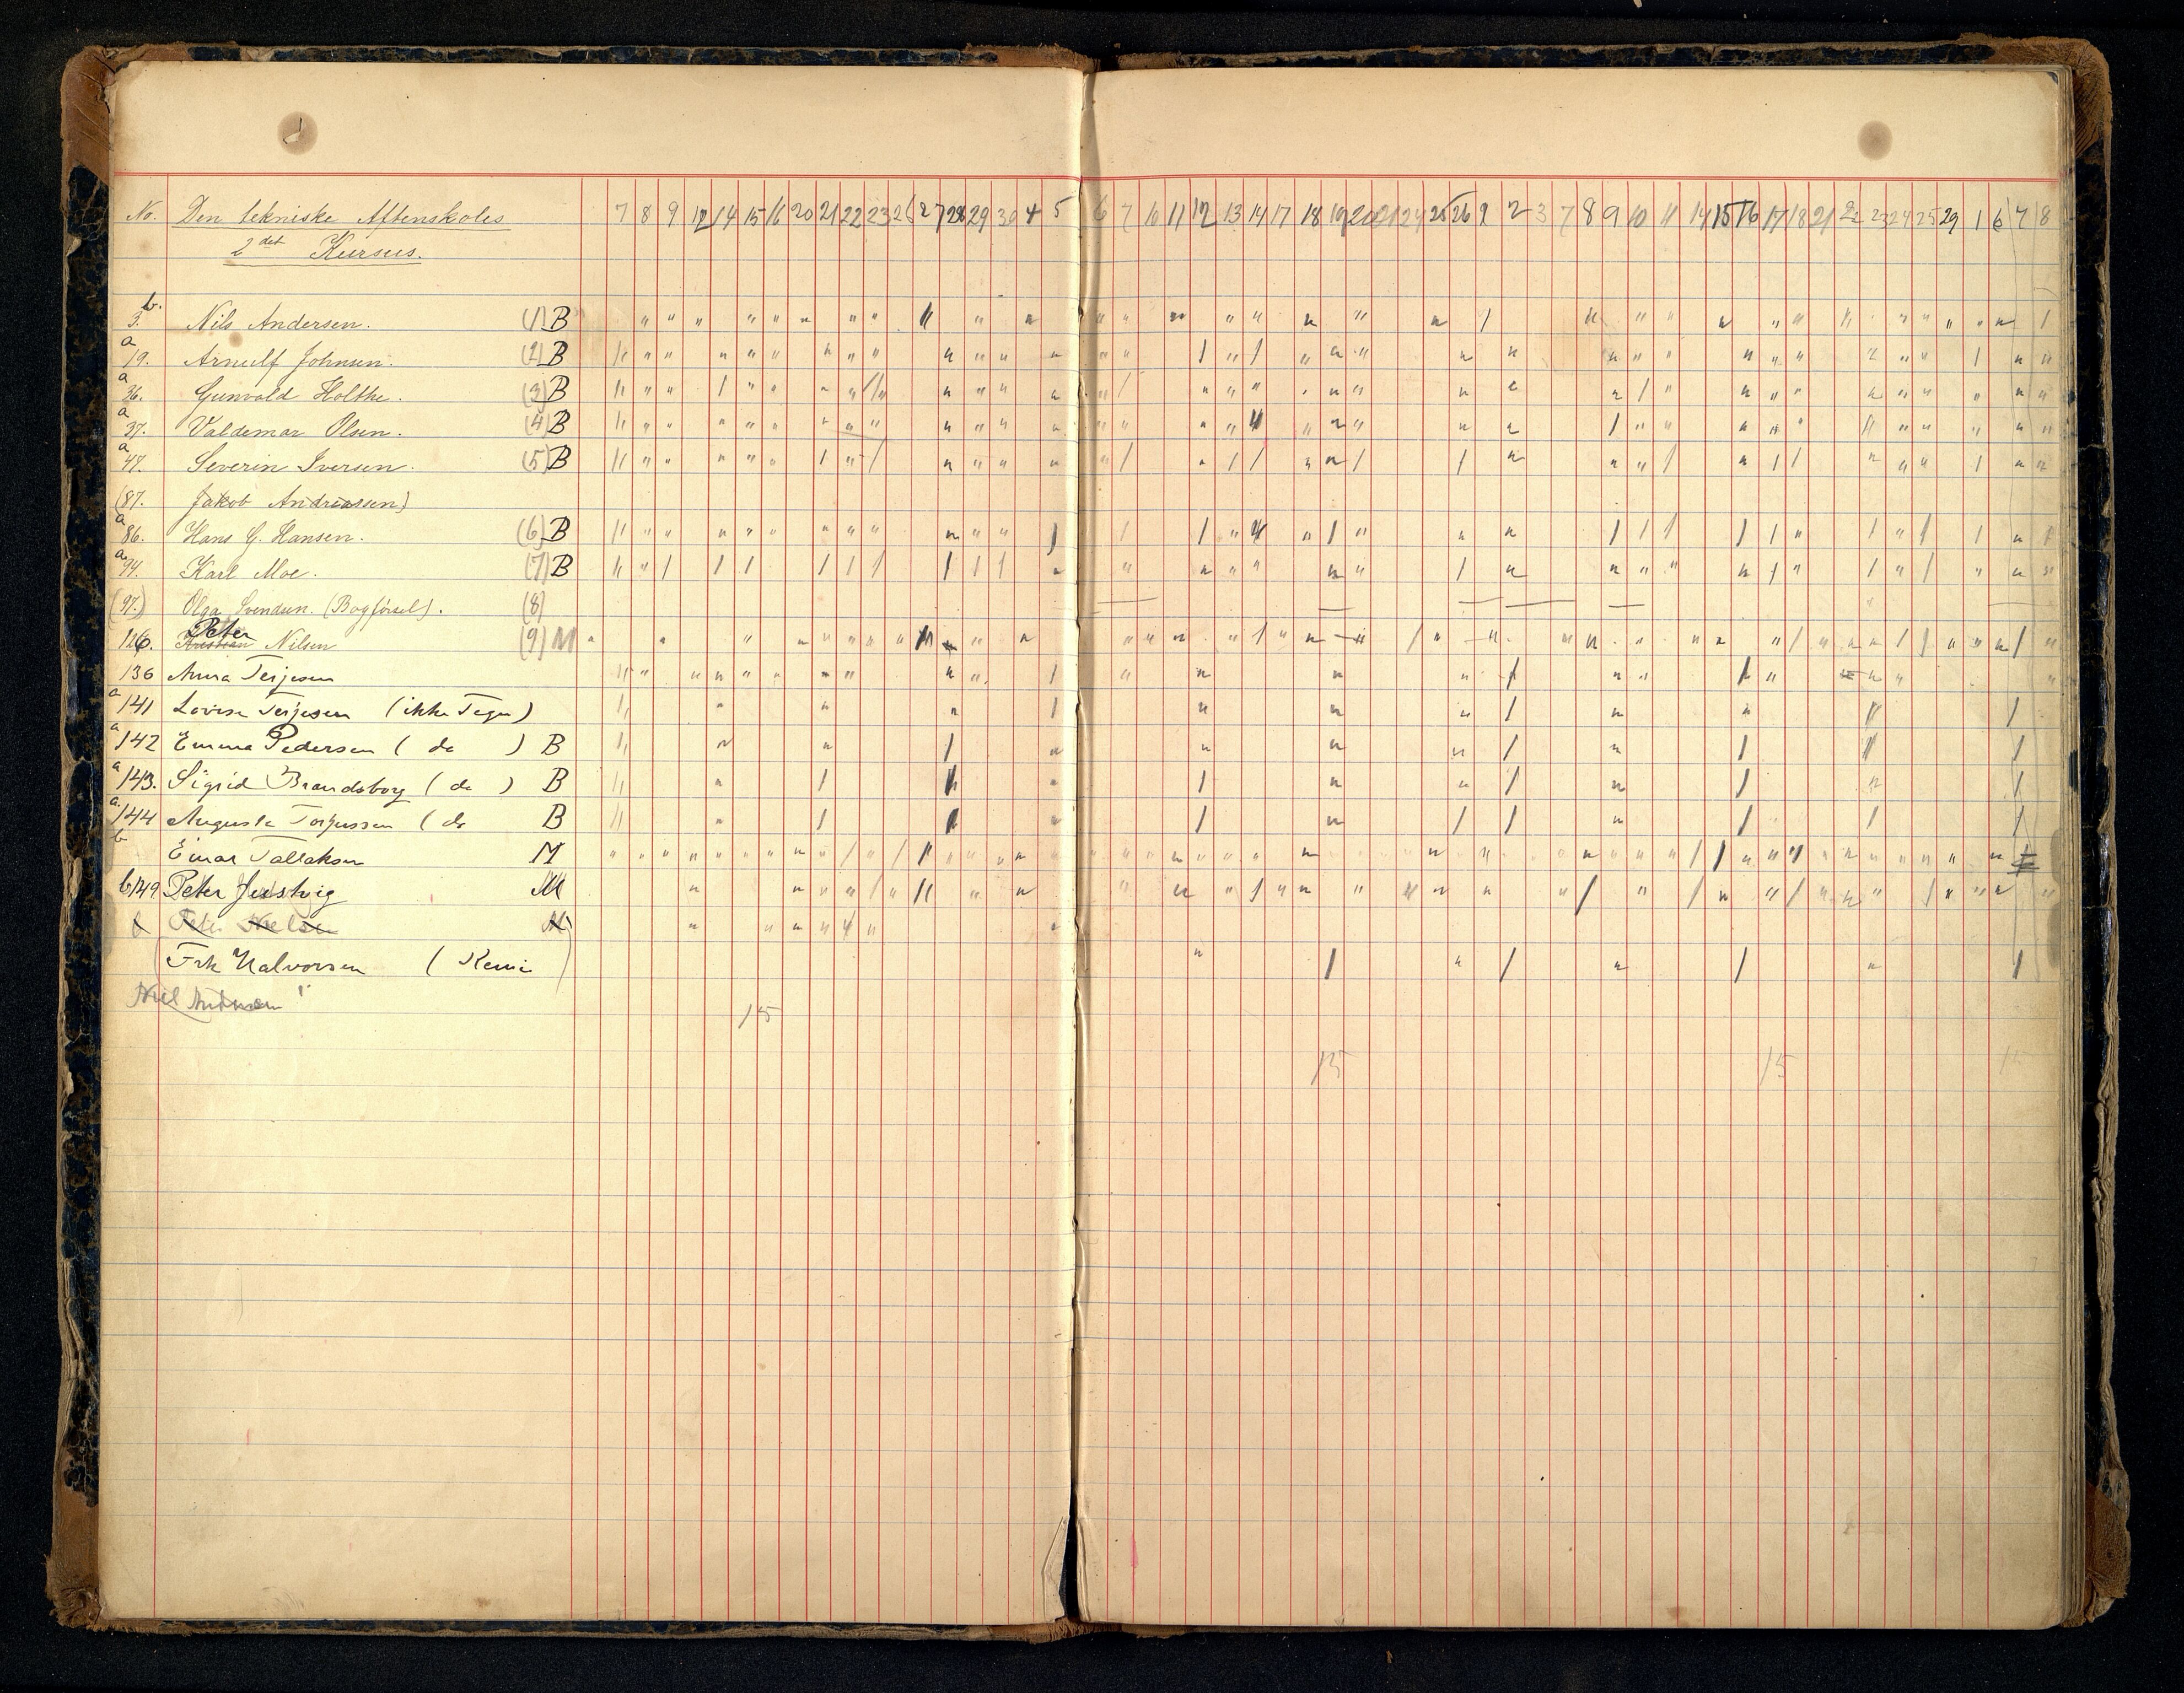 No. Den tekniske Aftenskoles 7 8 9 12 14 15 16 20 21 22 23 26 27 28 29 30 4 5 6 7 10 11 12 13 14 17 18 19 20 21 24 25 26 1 2 3 7 8 9 10 11 14 15 16 17 18 21 22 23 24 25 29 1 6 7 8
2det Kursus.
b. 3. Nils Andersen. (1) B
a 19. Arnulf Johnsen. (2) B
a 36. Gunvald Holthe. (3) B
a 37. Valdemar Olsen. (4) B
a 47. Severin Iversen. (5) B
(87. Jakob Andreassen)
a 86. Hans G. Hansen. (6) B
a 94. Karl Moe. (7) B
(97.) Olga Svendsen. (Bogførsel). (8)
126. Peter Kristian Nilsen (9) M
136 Anna Terjesen
a 141 Lovise Terjesen (ikke Tegn)
a 142 Emma Pedersen ( do ) B
a 143. Sigrid Brandsborg ( do ) B
a. 144 Augusta Torjussen ( do B
b Einar Tallaksen M
b 149 Peter Justvig M
b Peter Nielsen M
Frk Halvorsen ( Kemi
15
15 15 15